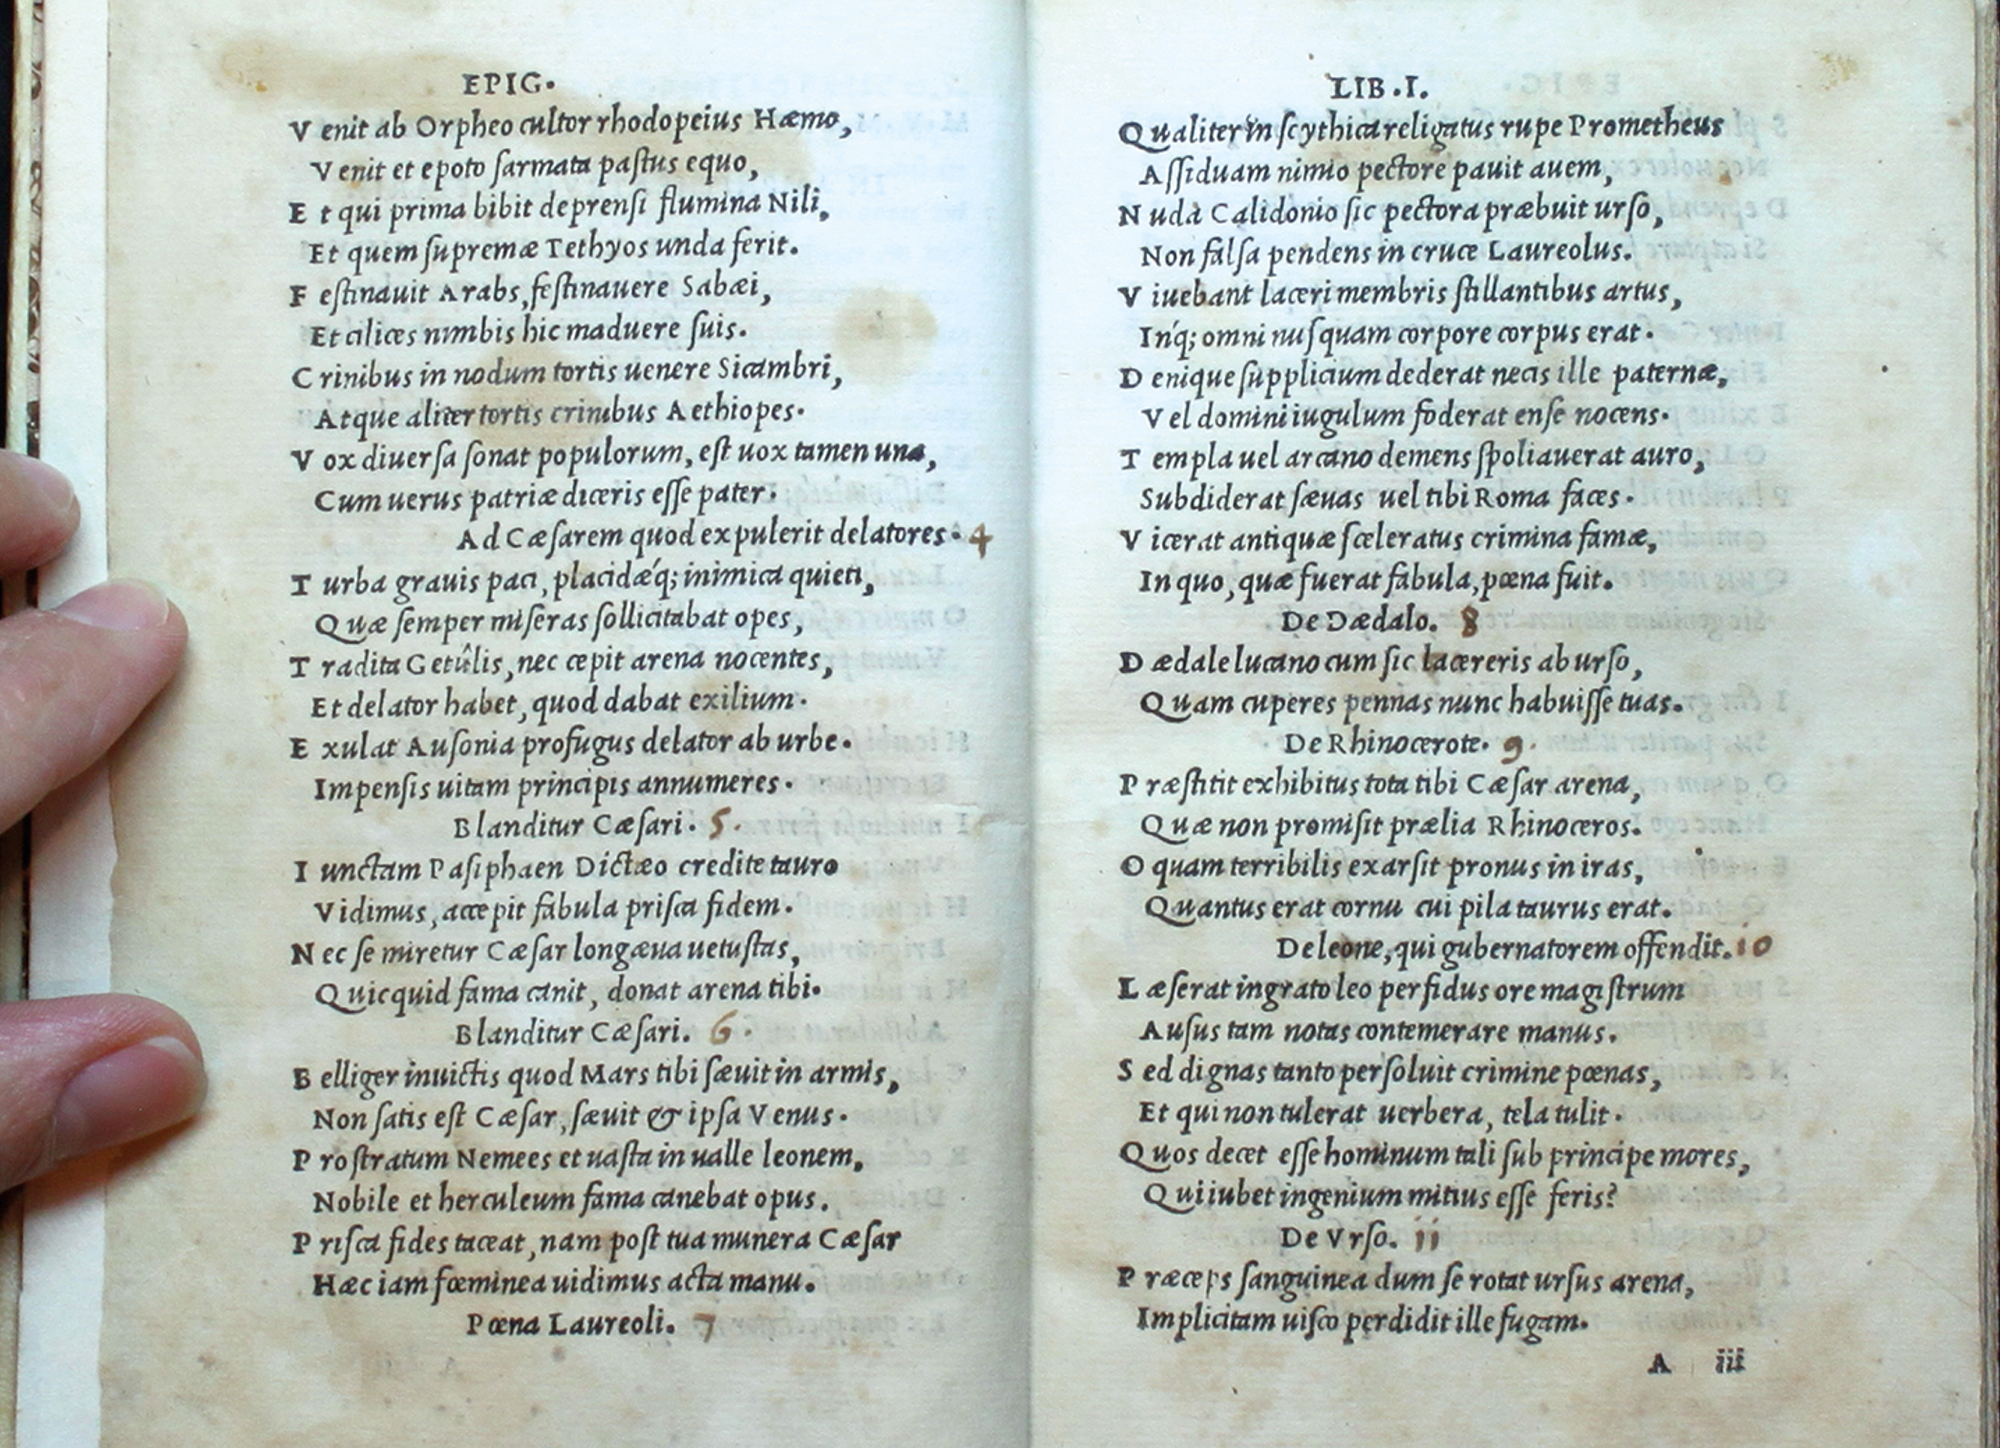 EPIG.
Venit ab Orpheo cultor rhodopeius Hæmo,
Venit et epoto ſarmata paſtus equo,
Et qui prima bibit deprenſi flumina Nili,
Et quem ſupremæ Tethyos unda ferit.
Feſtinauit Arabs, feſtinauere Sabæi,
Et cilices nimbis hic maduere ſuis.
Crinibus in nodum tortis uenere Sicambri,
Atque aliter tortis crinibus Aethiopes.
Vox diuerſa ſonat populorum, eſt uox tamen una,
Cum uerus patriæ diceris eſſe pater.
Ad Cæſarem quod expulerit delatores. 4
Turba grauis paci, placidǽq; inimica quieti,
Quæ ſemper miſeras ſollicitabat opes,
Tradita Getûlis, nec cepit arena nocentes,
Et delator habet, quod dabat exilium.
Exulat Auſonia profugus delator ab urbe.
Impenſis uitam principis annumeres.
Blanditur Cæſari. 5.
Iunctam Paſiphaen Dictæo credite tauro
Vidimus, accepit fabula priſca fidem.
Nec ſe miretur Cæſar longæua uetuſtas,
Quicquid fama canit, donat arena tibi.
Blanditur Cæſari. 6.
Belliger inuictis quod Mars tibi ſæuit in armis,
Non ſatis eſt Cæſar, ſæuit & ipſa Venus.
Proſtratum Nemees et uaſta in ualle leonem,
Nobile et herculeum fama canebat opus.
Priſca fides taceat, nam poſt tua munera Cæſar
Hæc iam fœminea uidimus acta manu.
Pœna Laureoli. 7
LIB.I.
Qualiter in ſcythica religatus rupe Prometheus
Aſſiduam nimio pectore pauit auem,
Nuda Calidonio ſic pectora præbuit urſo,
Non falſa pendens in cruce Laureolus.
Viuebant laceri membris ſtillantibus artus,
Inq́; omni nuſquam corpore corpus erat.
Denique ſupplicium dederat necis ille paternæ,
Vel domini iugulum foderat enſe nocens.
Templa uel arcano demens ſpoliauerat auro,
Subdiderat ſæuas uel tibi Roma faces.
Vicerat antiquæ ſceleratus crimina famæ,
In quo, quæ fuerat fabula, pœna fuit.
De Dædalo. 8
Dædale lucano cum ſic lacereris ab urſo,
Quam cuperes pennas nunc habuiſſe tuas.
De Rhinocerote. 9.
Præſtitit exhibitus tota tibi Cæſar arena,
Quæ non promiſit prælia Rhinoceros.
O quam terribilis exarſit pronus in iras,
Quantus erat cornu cui pila taurus erat.
De leone, qui gubernatorem offendit. 10
Læſerat ingrato leo perfidus ore magiſtrum
Auſus tam notas contemerare manus.
Sed dignas tanto perſoluit crimine pœnas,
Et qui non tulerat uerbera, tela tulit.
Quos decet eſſe hominum tali ſub principe mores,
Qui iubet ingenium mitius eſſe feris?
De Vrſo. 11
Præceps ſanguinea dum ſe rotat urſus arena,
Implicitam uiſco perdidit ille fugam.
A iii